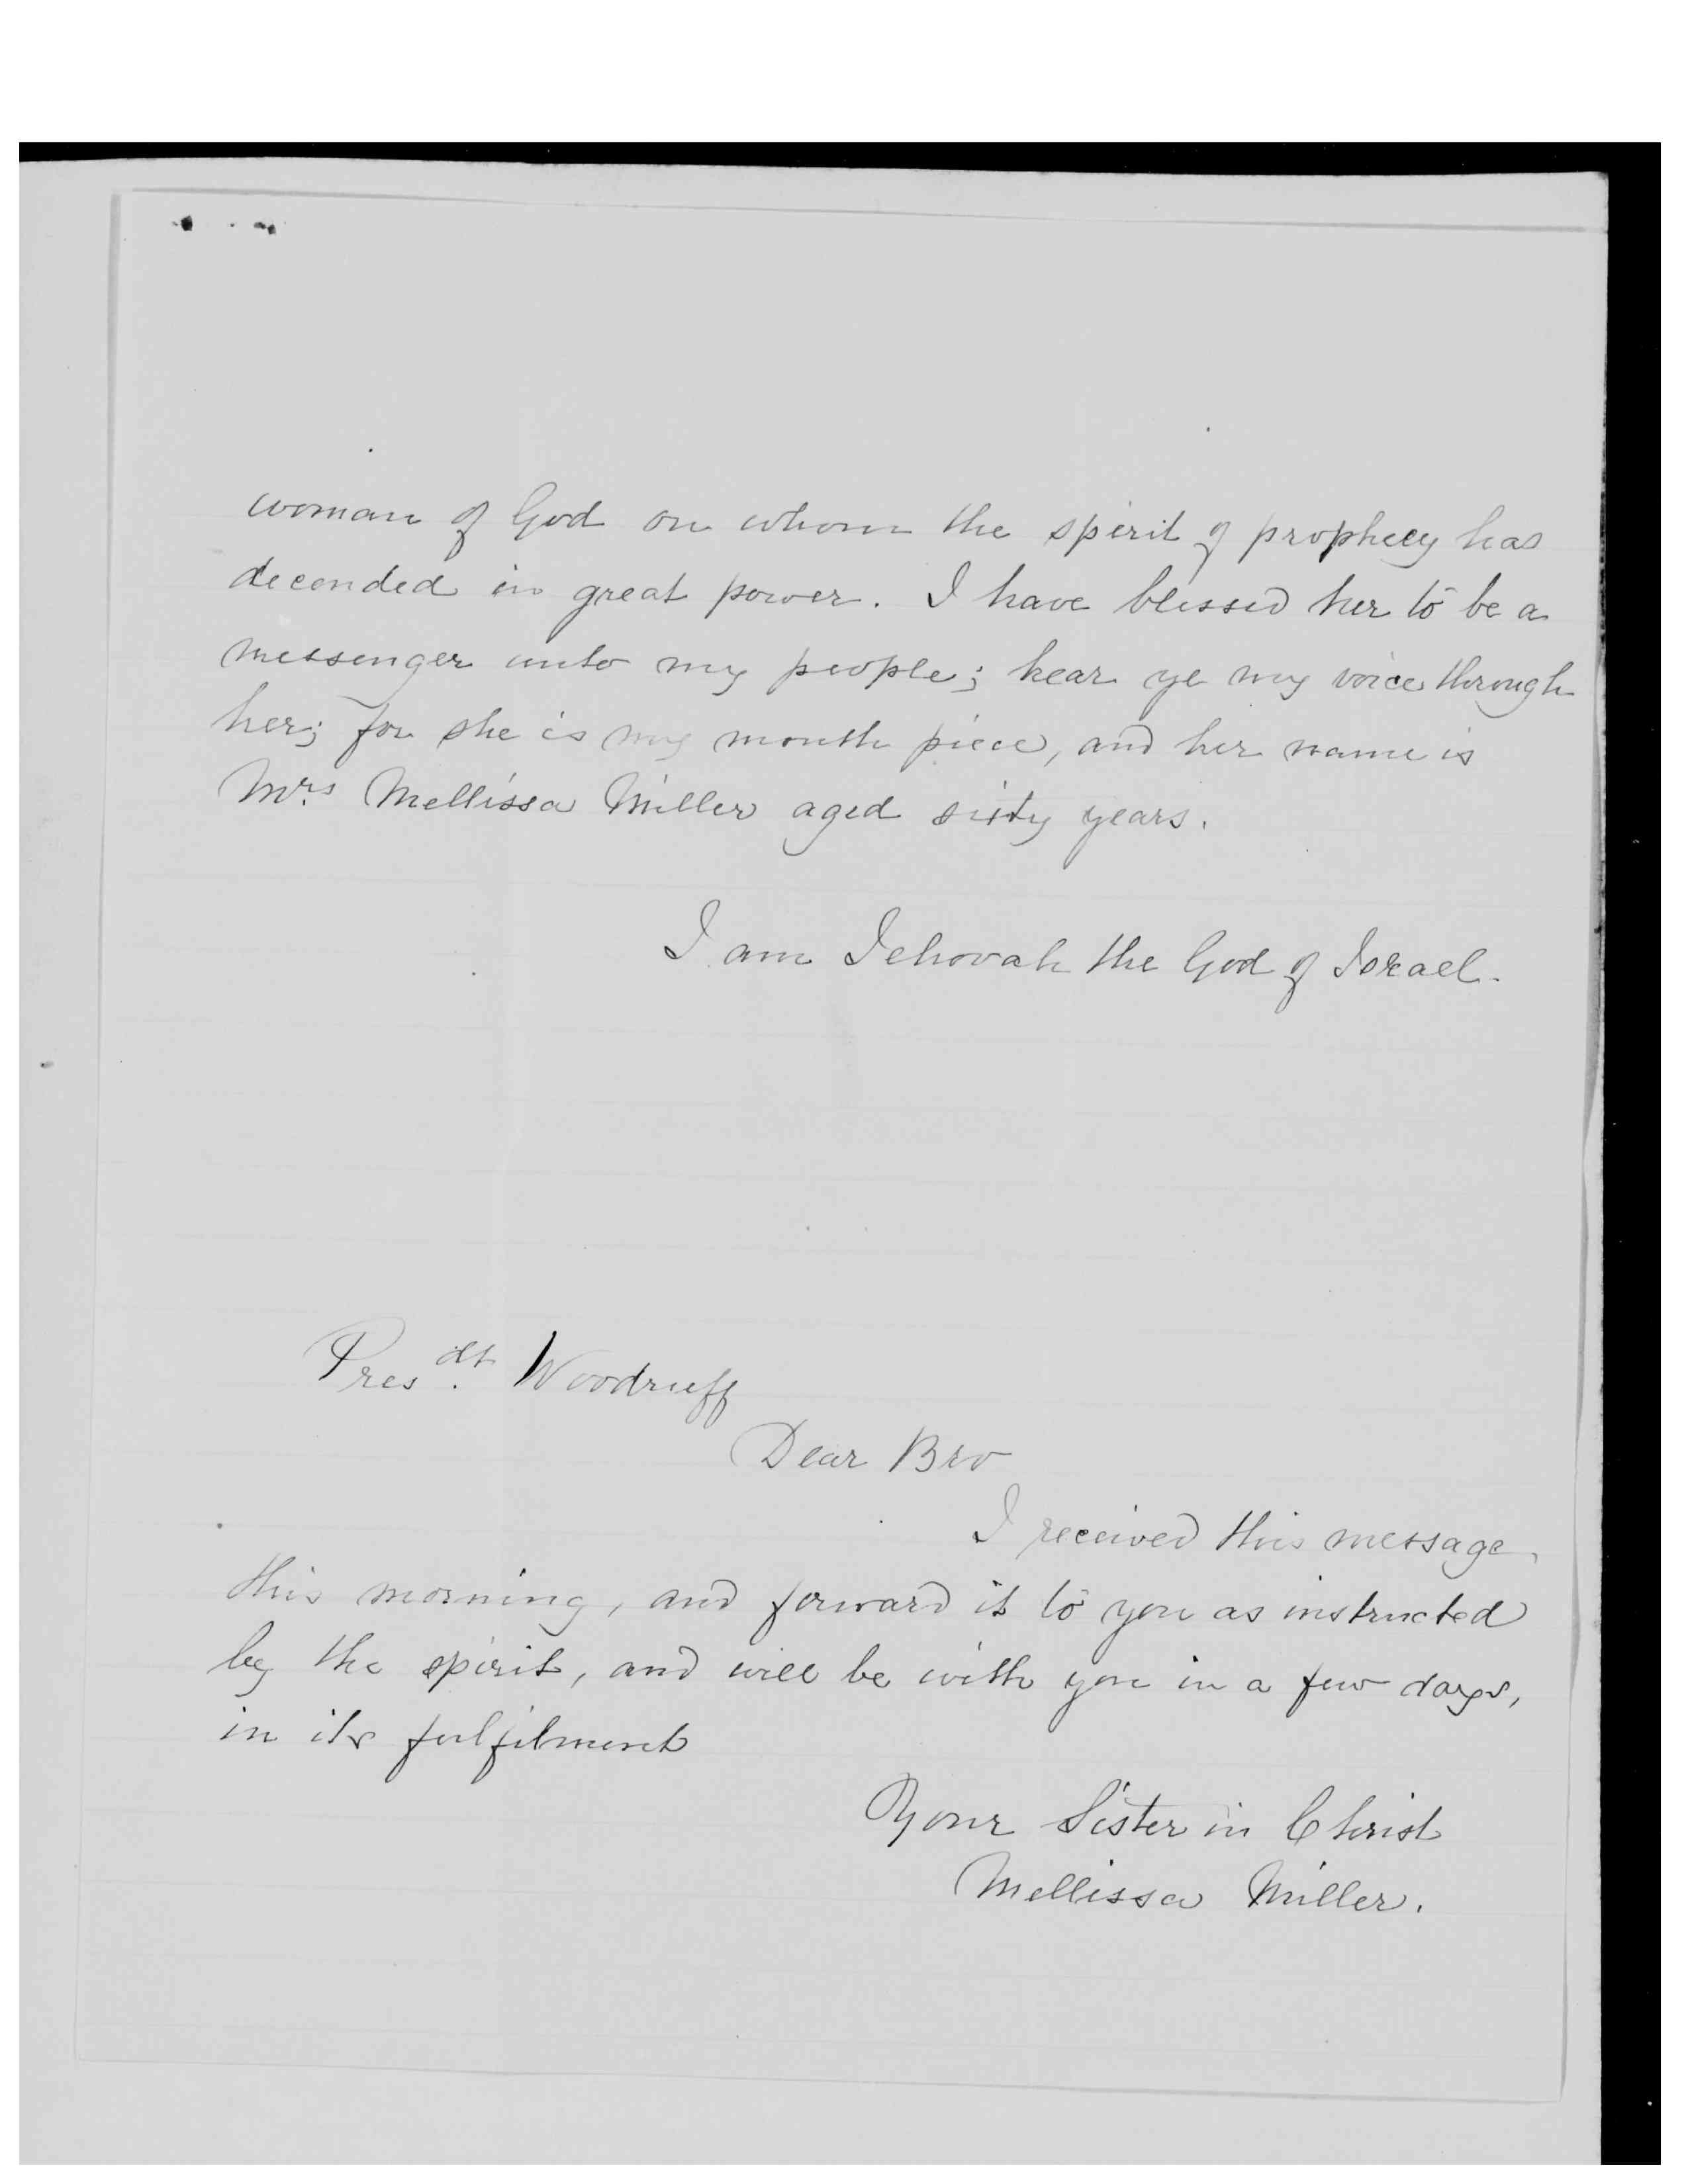 woman of God on whom the spirit of prophecy has
decended in great power. I have blessed her to be a
messenger unto my people; hear ye my voice through
her; for she is my mouth piece, and her name is
Mrs Mellissa Miller aged sixty years.
I am Jehovah the God of Israel.
Presdt. Woodruff
Dear Bro
I received this message
this morning, and forward it to you as instructed
by the spirit, and will be with you in a few days,
in its fulfilment
Your Sister in Christ
Mellissa Miller.